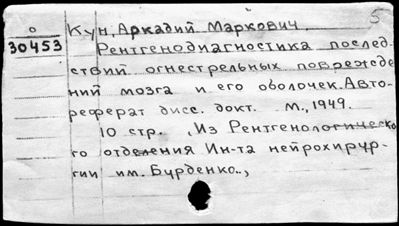 5
о
30453
Кун, Аркадий Маркович.
Рентгенодиагностика послед-
ствий огнестрельных поврежде
ний мозга и его оболочек. Авто-
реферат дисс. докт. М., 1949.
10 стр. , Из Рентгенологическо
го отделения Ин-та нейрохирур-
гии им. Бурденко..,